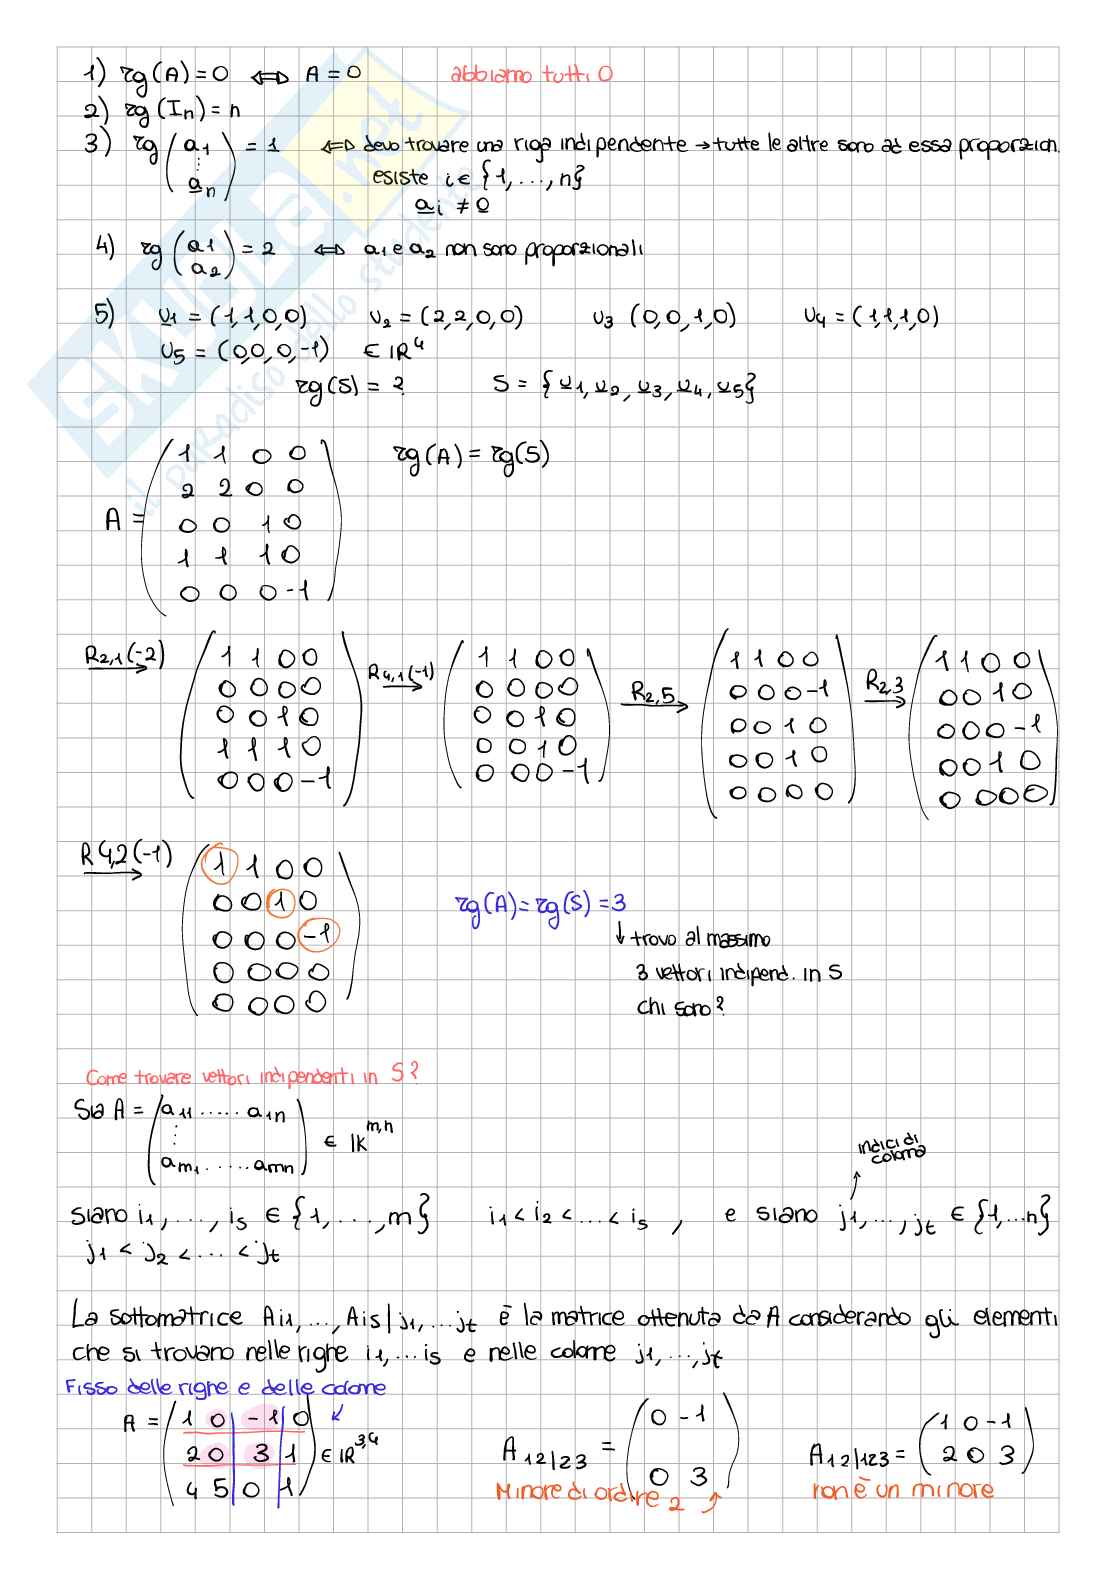 1) rg(A) = 0 ⇔ A = 0 abbiamo tutti 0
2) rg(In) = n
3) rg (a1 ⋮ an) = 1 ⇔ devo trovare una riga indipendente → tutte le altre sono ad essa proporzion
esiste i ∈ {1, ..., n}
ai ≠ 0
4) rg (a1 a2) = 2 ⇔ a1 e a2 non sono proporzionali
5) v1 = (1,1,0,0) v2 = (2,2,0,0) v3 (0,0,1,0) v4 = (1,1,1,0)
v5 = (0,0,0,-1) ∈ IR4
rg(S) = ? S = {v1, v2, v3, v4, v5}
1 1 0 0 rg(A) = rg(S)
2 2 0 0
A = 0 0 1 0
1 1 1 0
0 0 0 -1
R2,1(-2) 1 1 0 0 R4,1(-1) 1 1 0 0 R2,5 1 1 0 0 R2,3 1 1 0 0
0 0 0 0 0 0 0 0 0 0 0 -1 0 0 1 0
0 0 1 0 0 0 1 0 0 0 1 0 0 0 0 -1
1 1 1 0 0 0 1 0 0 0 1 0 0 0 1 0
0 0 0 -1 0 0 0 -1 0 0 0 0 0 0 0 0
R4,2(-1) 1 1 0 0
0 0 1 0 rg(A) = rg(S) = 3
0 0 0 -1 ↓ trovo al massimo
0 0 0 0 3 vettori indipend. in S
0 0 0 0 chi sono?
Come trovare vettori indipendenti in S?
Sia A = a11 ..... a1n
⋮ ∈ IK m,n
am1 ..... amn
indici di
colonna
siano i1, ..., is ∈ {1, ..., m} i1 < i2 < ... < is , e siano j1, ..., jt ∈ {1, ...n}
j1 < j2 < ... < jt
La sottomatrice Ai1, ..., Ais | j1, ... jt è la matrice ottenuta da A considerando gli elementi
che si trovano nelle righe i1, ... is e nelle colonne j1, ..., jt
Fisso delle righe e delle colonne
A = 1 0 -1 0
2 0 3 1 ∈ IR3,4
4 5 0 1
A12|23 = 0 -1
0 3
Minore di ordine 2
A12|123 = 1 0 -1
2 0 3
non è un minore
SKUOLA.net
il paradiso dello studente